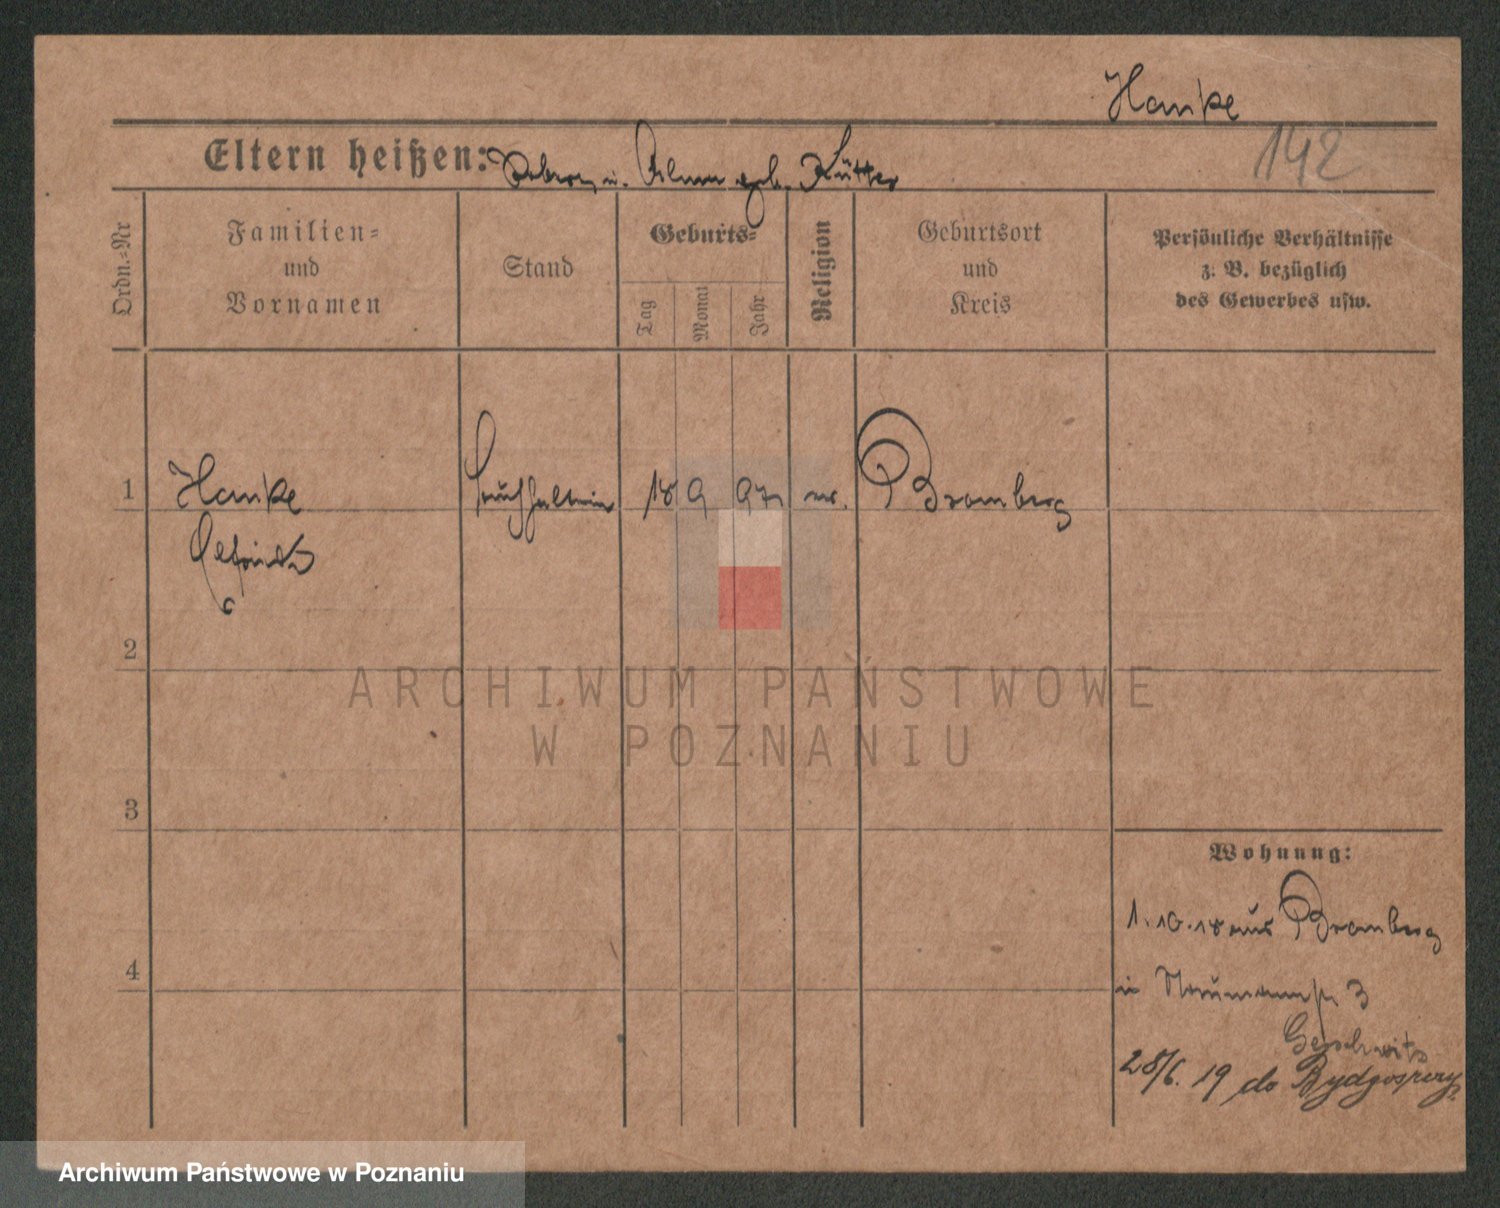 Hanke
142
Eltern heißen: u. geb. Kütter
Ordn.-Nr
Familien-
und
Vornamen
Stand
Geburts-
Tag
Monat
Jahr
Religion
Geburtsort
und
Kreis
Persönliche Verhältnisse
z. B. bezüglich
des Gewerbes usw.
1 Hanke Buchhalterin 18 9 97 ev. Bromberg
2
3
4
Wohnung:
1.10.18 aus Bromberg
Neumannstr 3
28/6. 19 do Bydgoszczy
ARCHIWUM PAŃSTWOWE
W POZNANIU
Archiwum Państwowe w Poznaniu